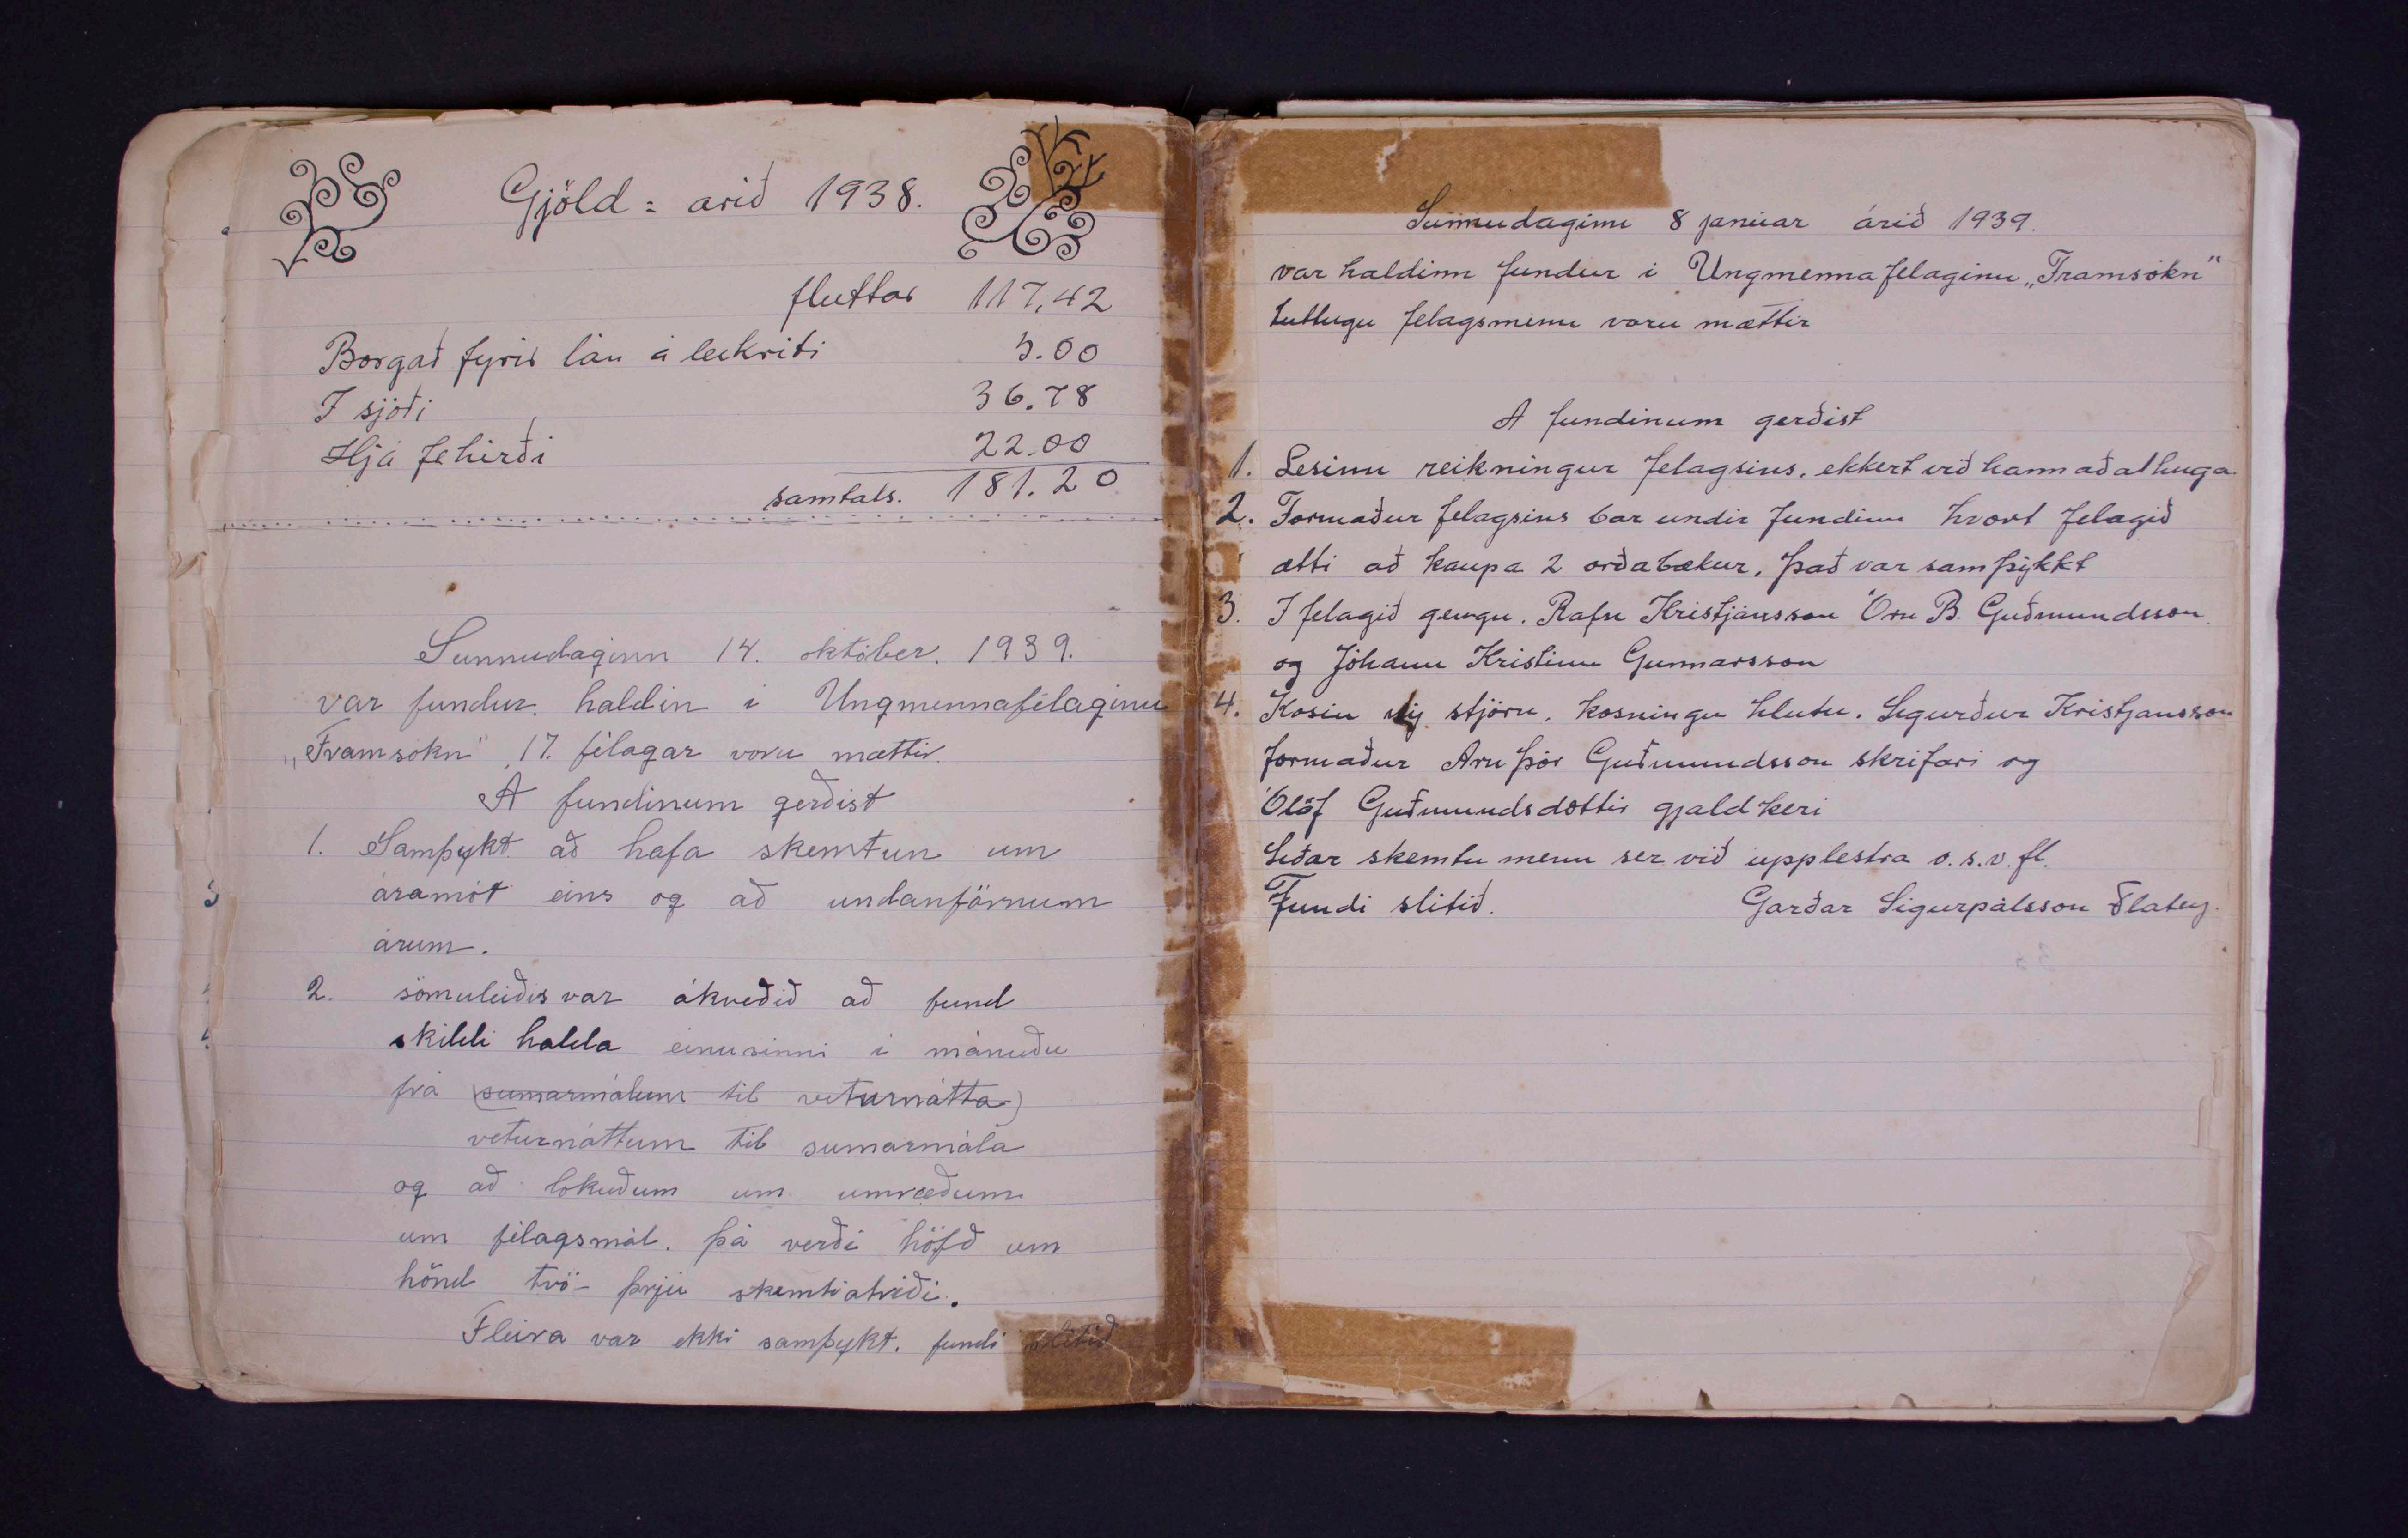 Gjöld = arið 1938.
fluttar 117,42
Borgað fyrir lán á leikriti 5.00
I sjóði 36.78
Hjá fehirði 22.00
samtals. 181.20
Sunnudaginn 14. október. 1939.
var fundur haldin i Ungmennafélaginu
„Framsókn" 17. félagar voru mættir.
A fundinum gerðist
1. Samþykt að hafa skemtun um
áramót eins og að undanförnum
árum.
2. sömuleiðis var ákveðið að fund
skildi halda einusinni i mánuðu
frá (sumarmálum til veturnátta)
veturnáttum til sumarmála
og að lokuðum um umræðum
um félagsmál. þá verði höfð um
hönd tvö- þrjú skemtiatriði.
Fleira var ekki samþykt. fundi slitið
Sunnudaginn 8 janúar árið 1939.
var haldinn fundur i Ungmennafelaginu „Framsókn"
tuttugu felagsmenn voru mættir
A fundinum gerðist
1. Lesinn reikningur felagsins. ekkert við hann að athuga
2. Formaður felagsins bar undir fundinn hvort felagið
ætti að kaupa 2 orðabækur, það var samþykkt
3. I felagið gengu. Rafn Kristjánsson Örn B. Guðmundsson
og Jóhann Kristinn Gunnarsson
4. Kosin ný stjórn. kosningu hlutu. Sigurður Kristjansson
formaður Arnþór Guðmundsson skrifari og
Ólöf Guðmundsdottir gjaldkeri
Siðar skemtu menn ser við upplestra o.s.v.fl.
Fundi slitið. Garðar Sigurpálsson Flatey.